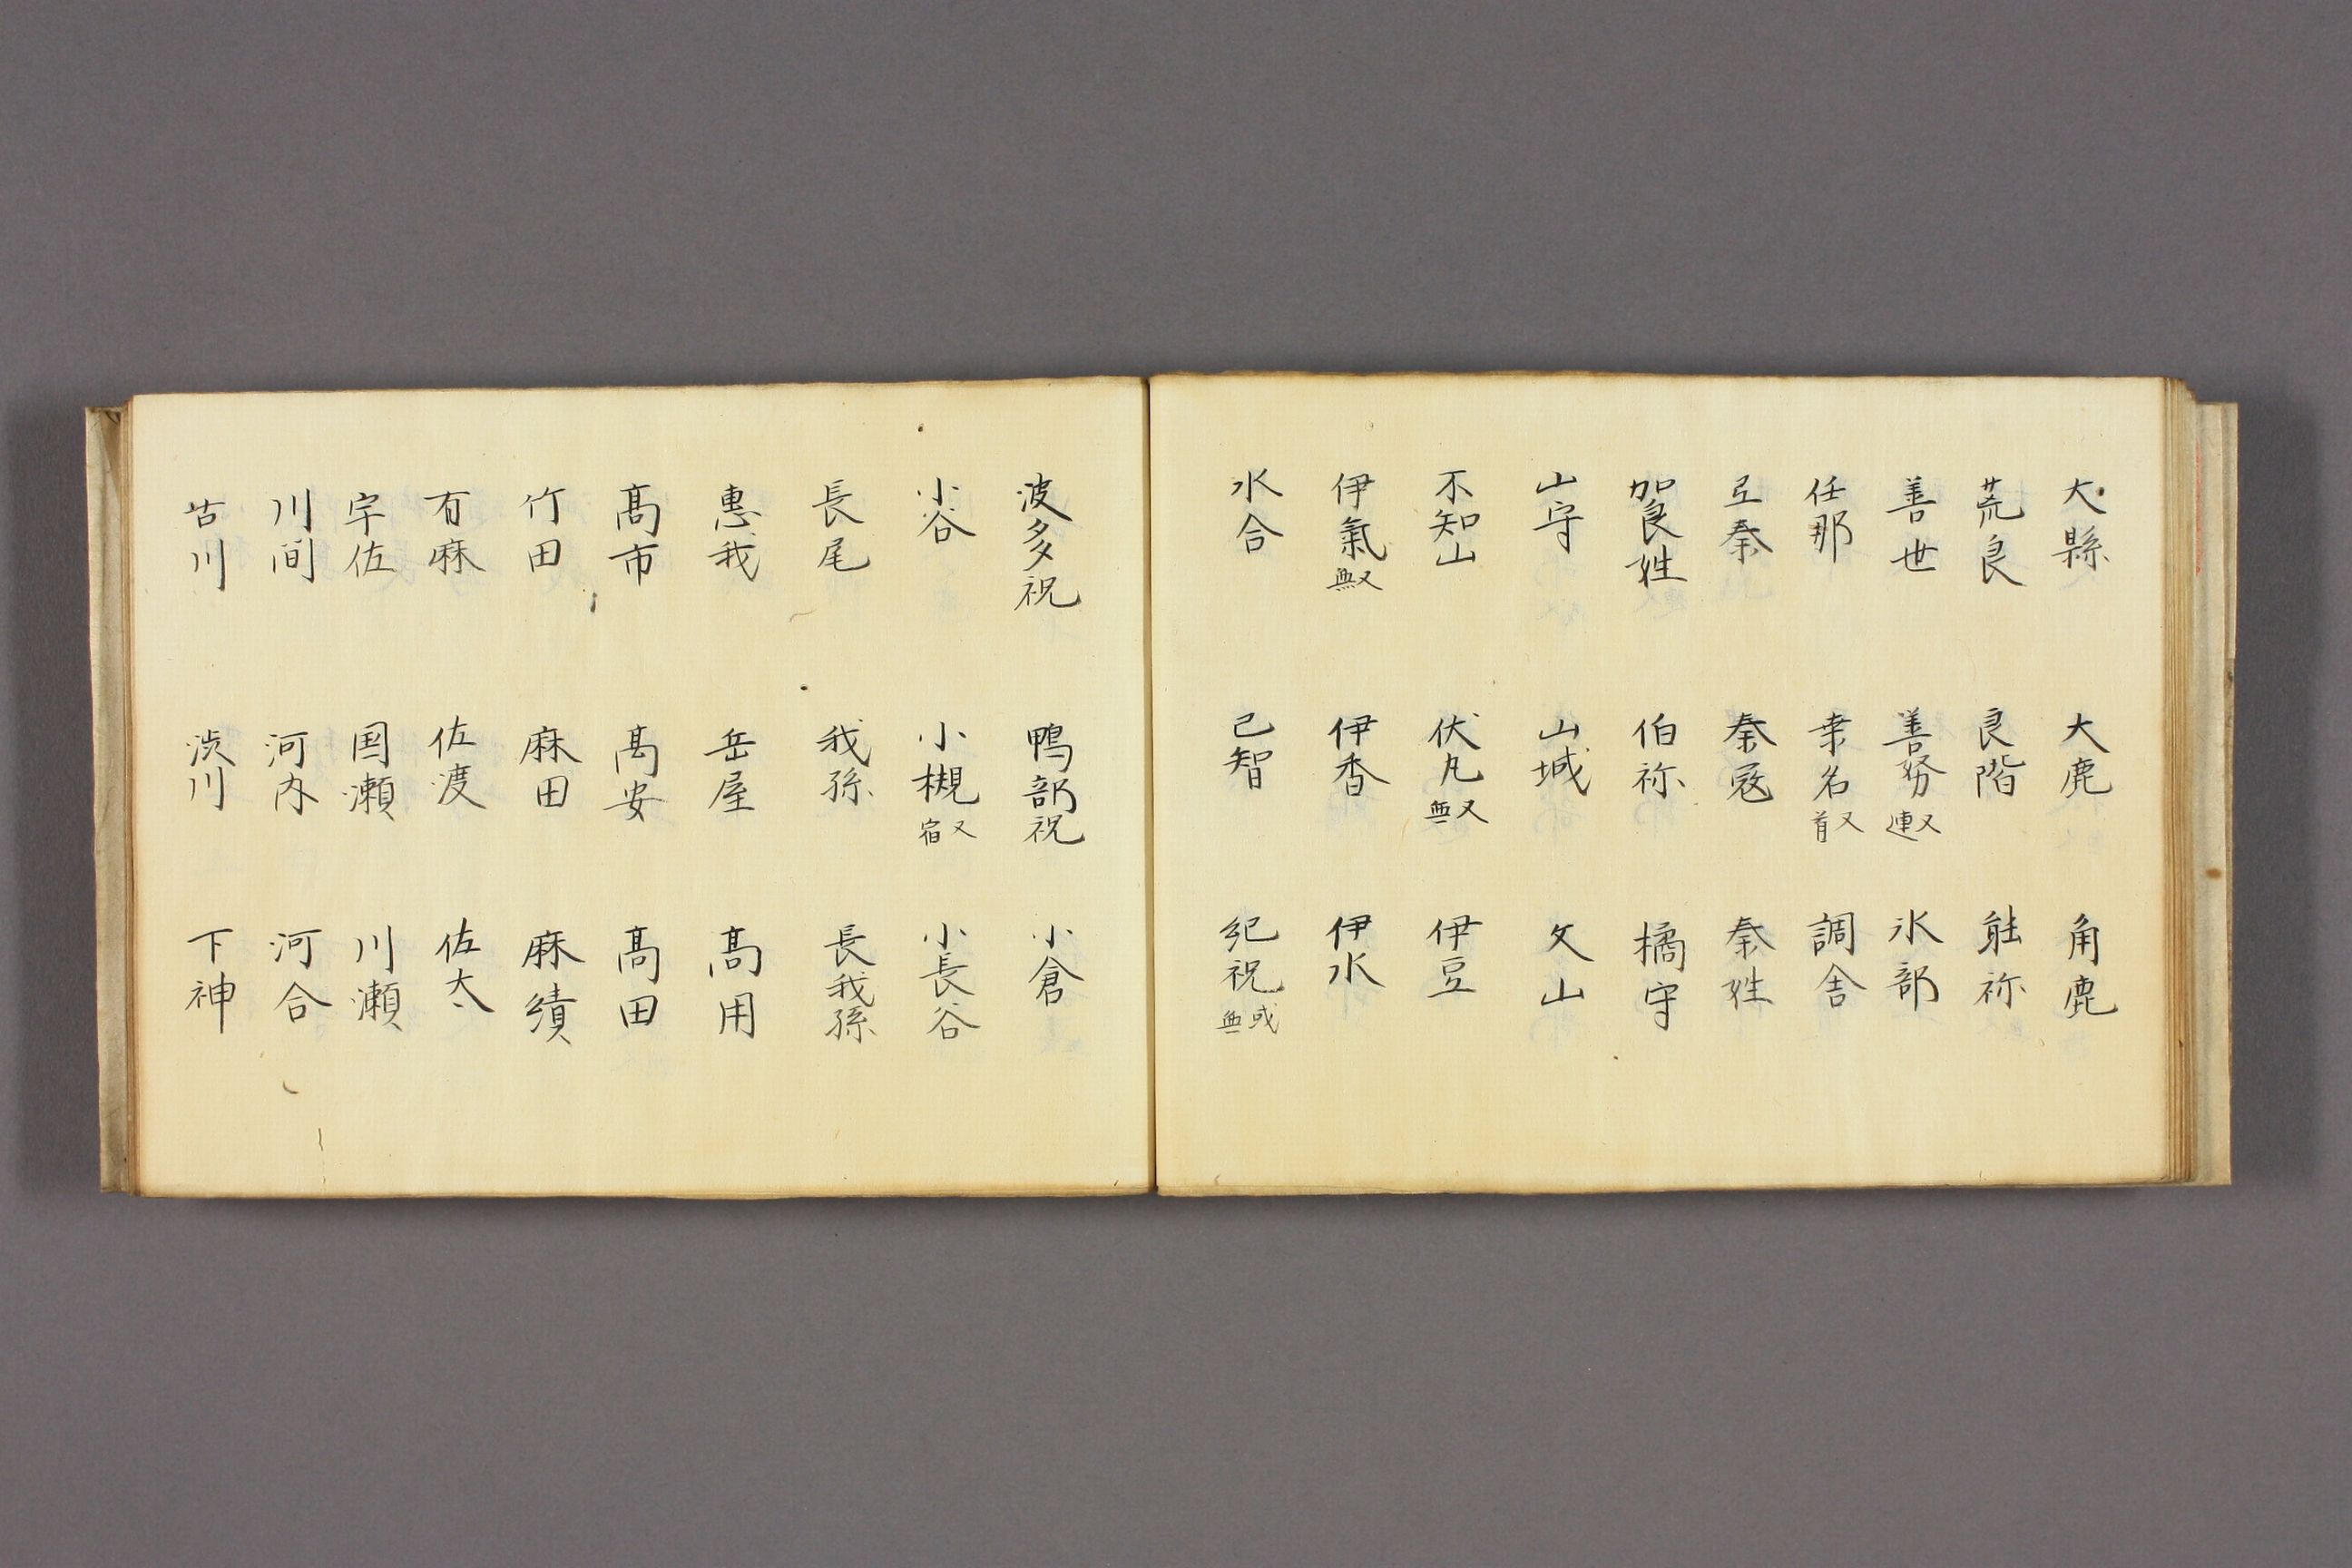 大縣 大鹿 角鹿
荒良 良階 能祢
善世 善努又連 氷部
任那 桒名又首 調舎
己秦 秦冦 秦姓
賀良姓 伯祢 橘守
山守 山城 文山
不知山 伏凡又無 伊豆
伊氣又無 伊香 伊水
水合 己智 紀祝或無
波多祝 鴨部祝 小倉
小谷 小槻又宿 小長谷
長尾 我孫 長我孫
惠我 岳屋 髙用
髙市 髙安 髙田
竹田 麻田 麻績
有麻 佐渡 佐太
宇佐 国瀬 川瀬
川間 河内 河合
古川 渋川 下神